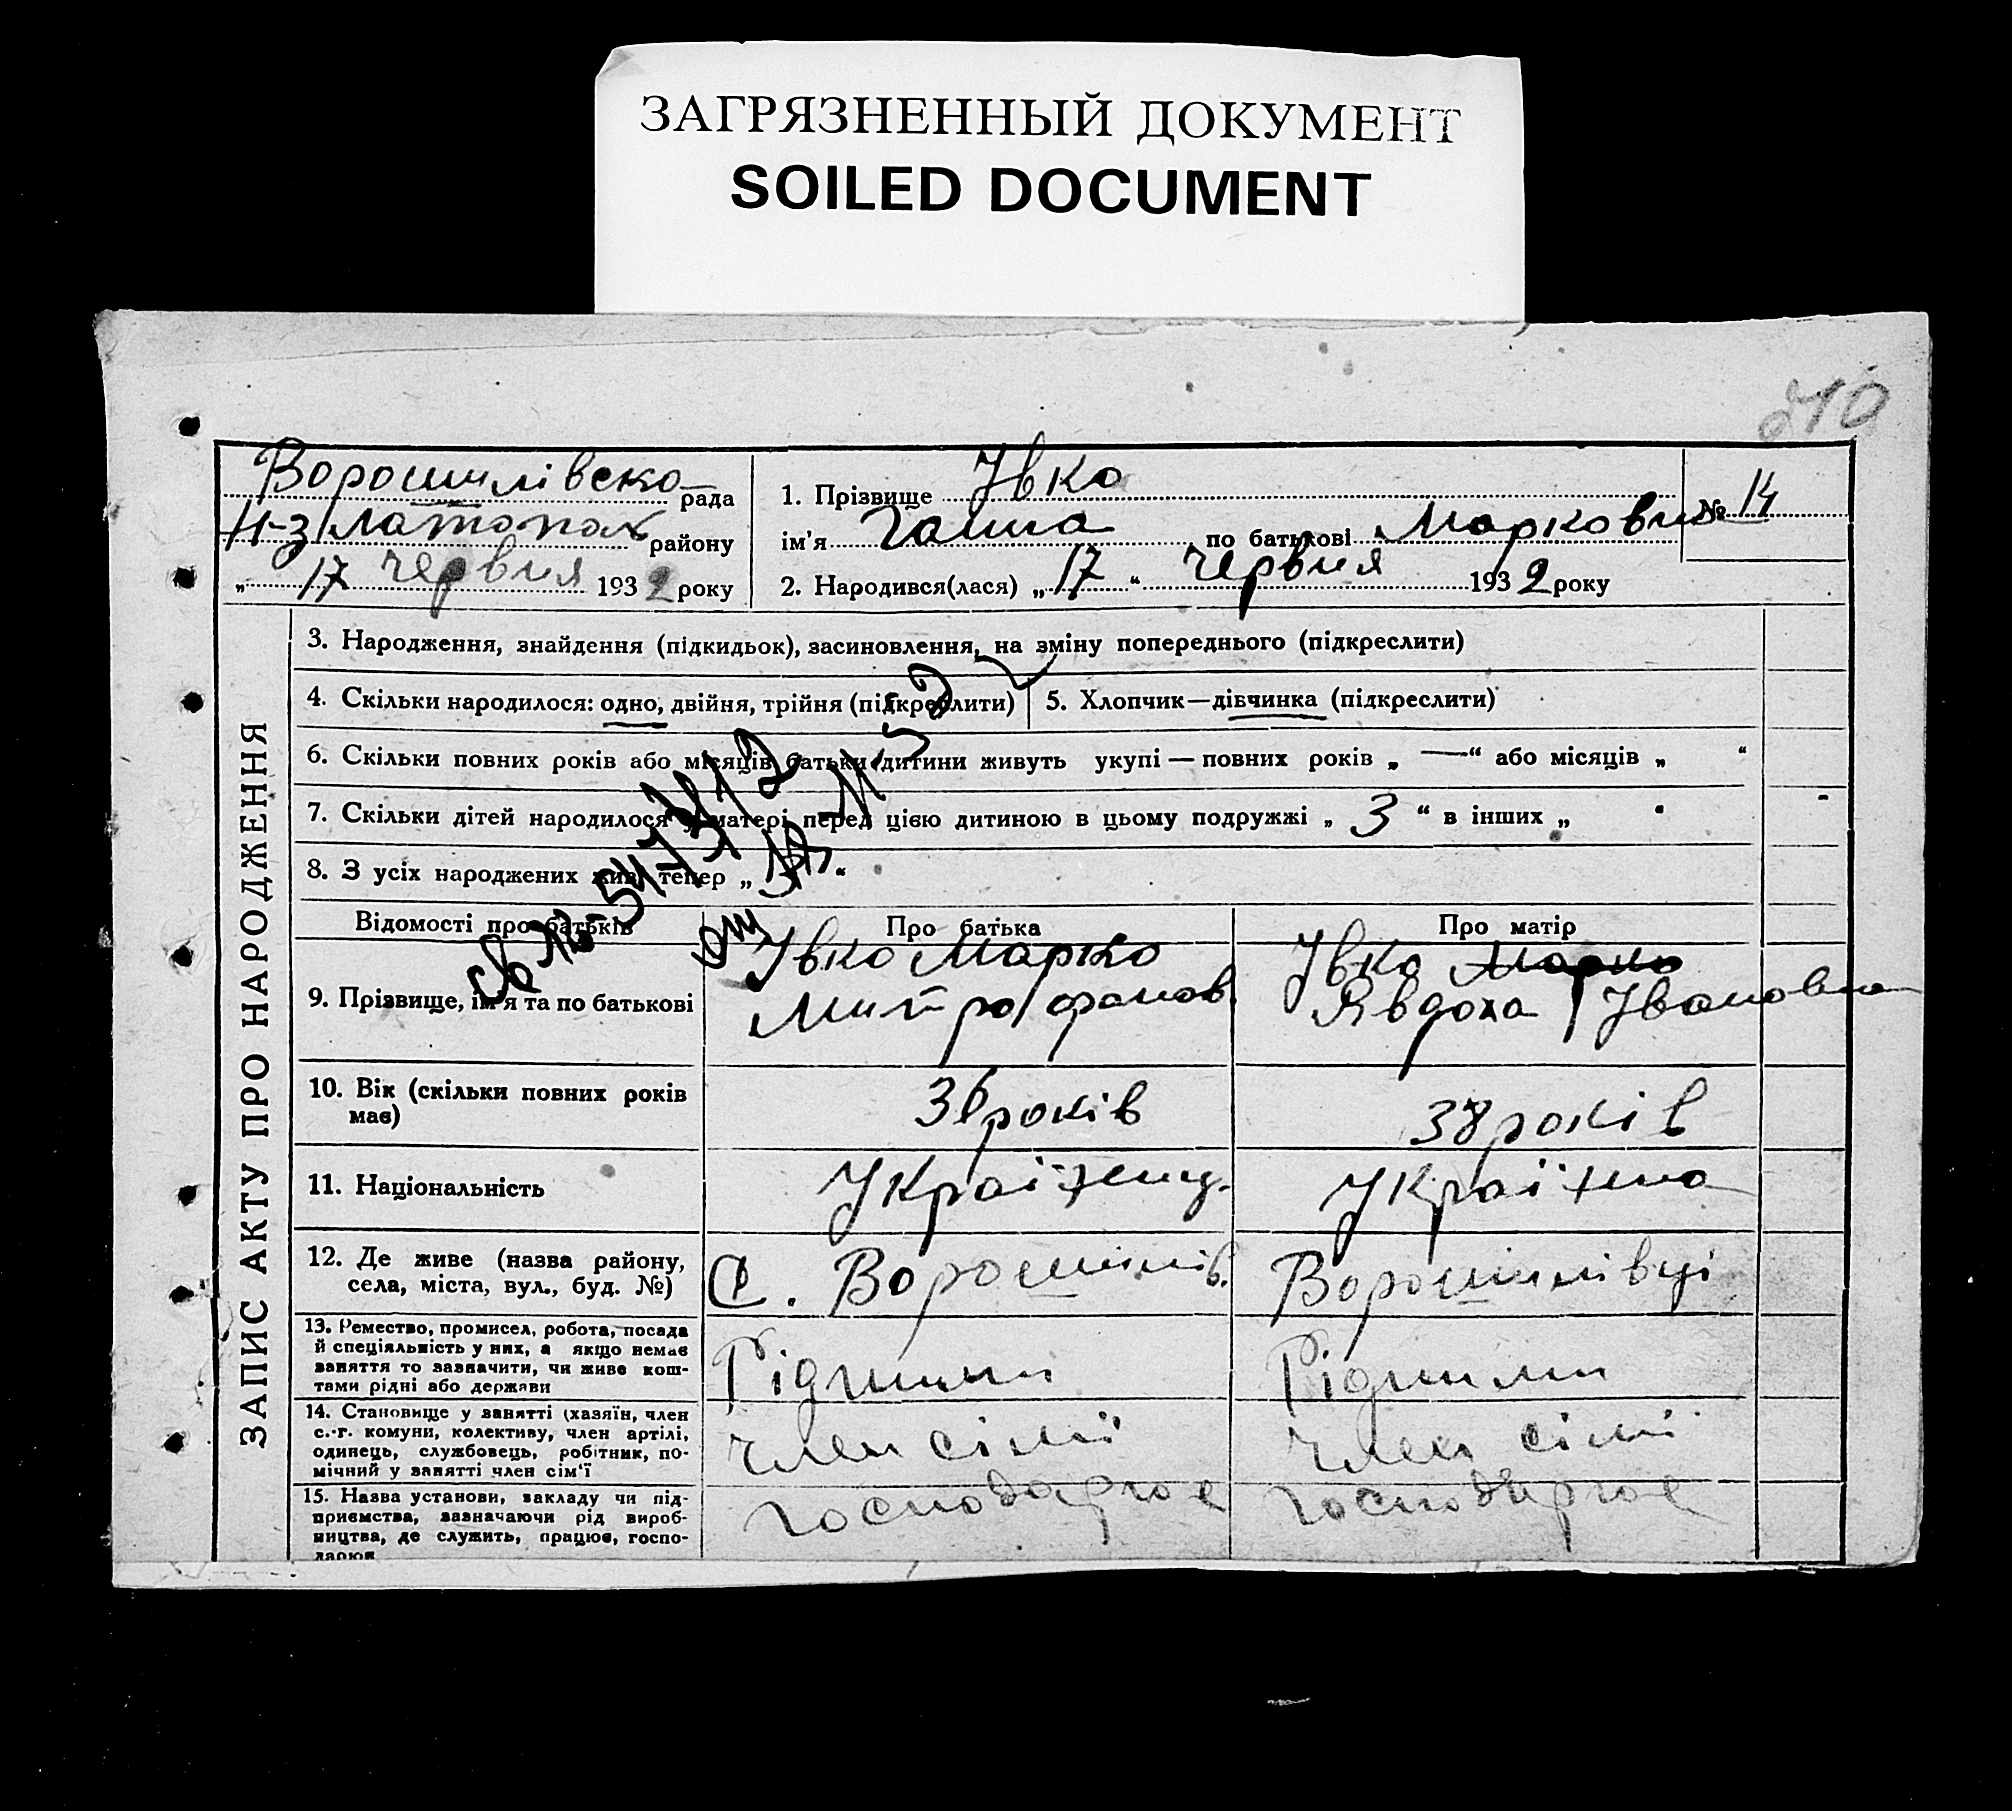 ЗАГРЯЗНЕННЫЙ ДОКУМЕНТ
SOILED DOCUMENT
210
Ворошилівсько рада
Н-Златопол району
„ 17 червня 1932 року
1. Прізвище Івко
ім'я Ганна по батькові Марковна
2. Народився(лася) „ 17 “ червня 1932 року
№ 14
ЗАПИС АКТУ ПРО НАРОДЖЕННЯ
3. Народження, знайдення (підкидьок), засиновлення, на зміну попереднього (підкреслити)
4. Скільки народилося: одно, двійня, трійня (підкреслити)
5. Хлопчик—дівчинка (підкреслити)
6. Скільки повних років або місяців батьки дитини живуть укупі — повних років „ —“ або місяців „ “
7. Скільки дітей народилося у матері перед цією дитиною в цьому подружжі „ 3 “ в інших „ “
8. З усіх народжених живі тепер „ “
Відомості про батьків
Про батька
Про матір
9. Прізвище, ім'я та по батькові
Івко Марко
Митрофанов
Івко Марко
Явдоха Івановна
10. Вік (скільки повних років
має)
років
38 років
11. Національність
Українец.
Українка
12. Де живе (назва району,
села, міста, вул., буд. №)
С. Ворошилів.
Ворошилівці
13. Ремество, промисел, робота, посада
й спеціяльність у них, а якщо немає
заняття то зазначити, чи живе кош-
тами рідні або держави
14. Становище у занятті (хазяїн, член
с.-г. комуни, колективу, член артілі,
одинець, службовець, робітник, по-
мічний у занятті член сім'ї
член сімї
член сімї
15. Назва установи, закладу чи під-
приємства, зазначаючи рід вироб-
ництва, де служить, працює, госпо-
дарює